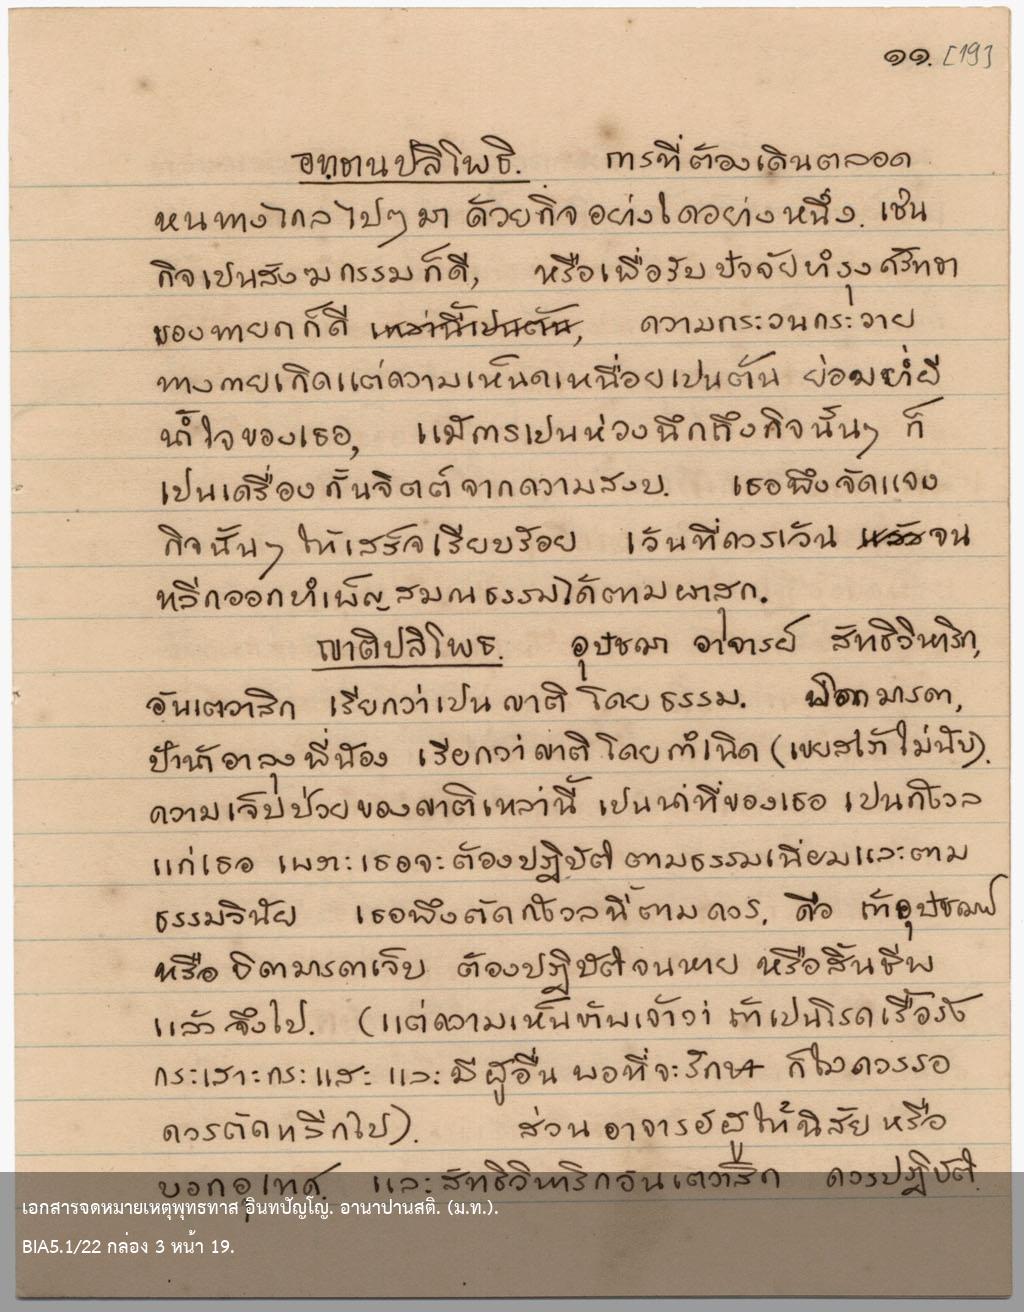 ๑๑. [19]
อทฺธานปลิโพธิ. การที่ต้องเดินตลอด
หนทางไกลไปๆมา ด้วยกิจอย่างใดอย่างหนึ่ง. เช่น
กิจเป็นสังฆกรรมก็ดี, หรือเพื่อรับปัจจัยบำรุงศรัทธา
ของทายกก็ดี เหล่านี้เป็นต้น, ความกระวนกระวาย
ทางกายเกิดแต่ความเหน็ดเหนื่อยเป็นต้น ย่อมย่ำยี
น้ำใจของเธอ, แม้การเป็นห่วงนึกถึงกิจนั้นๆ ก็
เป็นเครื่องกั้นจิตต์จากความสงบ. เธอพึงจัดแจง
กิจนั้นๆ ให้เสร็จเรียบร้อย เว้นที่ควรเว้น แล้ว จน
หลีกออกบำเพ็ญสมณธรรมได้ตามผาสุก.
ญาติปลิโพธ. อุปัชฌา อาจารย์ สัทธิวิหาริก,
อันเตวาสิก เรียกว่าเป็นญาติโดยธรรม. มารดา,
ป้าน้าอาลุงพี่น้อง เรียกว่าญาติโดยกำเนิด (เขยสะใภ้ไม่นับ).
ความเจ็บป่วยของญาติเหล่านี้ เป็นน่าที่ของเธอ เป็นกังวล
แก่เธอ เพราะเธอจะต้องปฏิบัติ ตามธรรมเนียมและตาม
ธรรมวินัย เธอพึงตัดกังวลนี้ตามควร, คือ ถ้าอุปัชฌาย์
หรือ บิดามารดาเจ็บ ต้องปฏิบัติจนหาย หรือสิ้นชีพ
แล้วจึงไป. (แต่ความเห็นข้าพเจ้าว่า ถ้าเป็นโรคเรื้อรัง
กระเสาะกระแสะ และมีผู้อื่น พอที่จะรักษา ก็ไม่ควรรอ
ควรตัดหลีกไป). ส่วนอาจารย์ผู้ให้นิสัย หรือ
บอกอุเทศ. และสัทธิวิหาริกอันเตวาสิก ควรปฏิบัติ
เอกสารจดหมายเหตุพุทธทาส อินทปัญโญ. อานาปานสติ. (ม.ท.).
BIA5.1/22 กล่อง 3 หน้า 19.